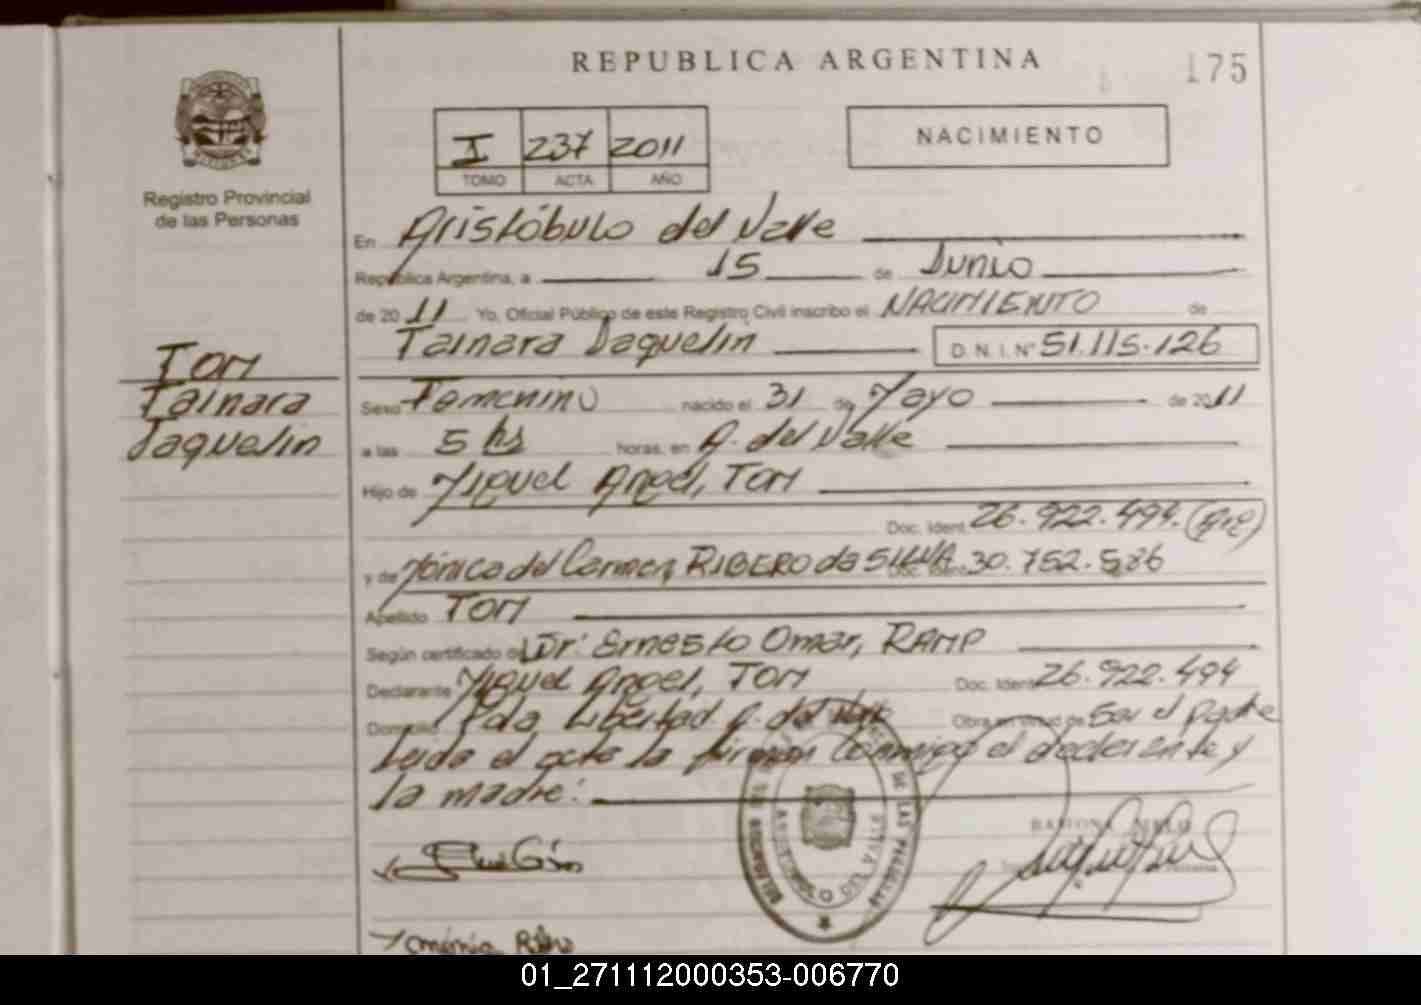 REPUBLICA ARGENTINA
175
Registro Provincial
de las Personas
I 237 2011
TOMO ACTA AÑO
NACIMIENTO
En Aristóbulo del Valle
República Argentina, a 15 de Junio
de 2011 Yo, Oficial Público de este Registro Civil inscribo el NACIMIENTO de
Tainara Jaquelin D.N.I. Nº 51.115.126
TOM
Tainara
Jaquelin
Sexo Femenino nacido el 31 de Mayo de 2011
a las 5 hs horas, en A. del Valle
Hijo de Miguel Angel, TOM
Doc. Ident. 26.922.494. (Arg)
y de Mónica del Carmen, RIBERO da SILVA. 30.752.586
Apellido TOM
Según certificado de Dr: Ernesto Omar, RAMP
Declarante Miguel Angel, TOM Doc. Ident. 26.922.494
Domicilio Pdla Libertad. A. del Valle Obra en virtud de Ser el padre
Leida el acta la firman conmigo el declarante y
la madre:
01_271112000353-006770